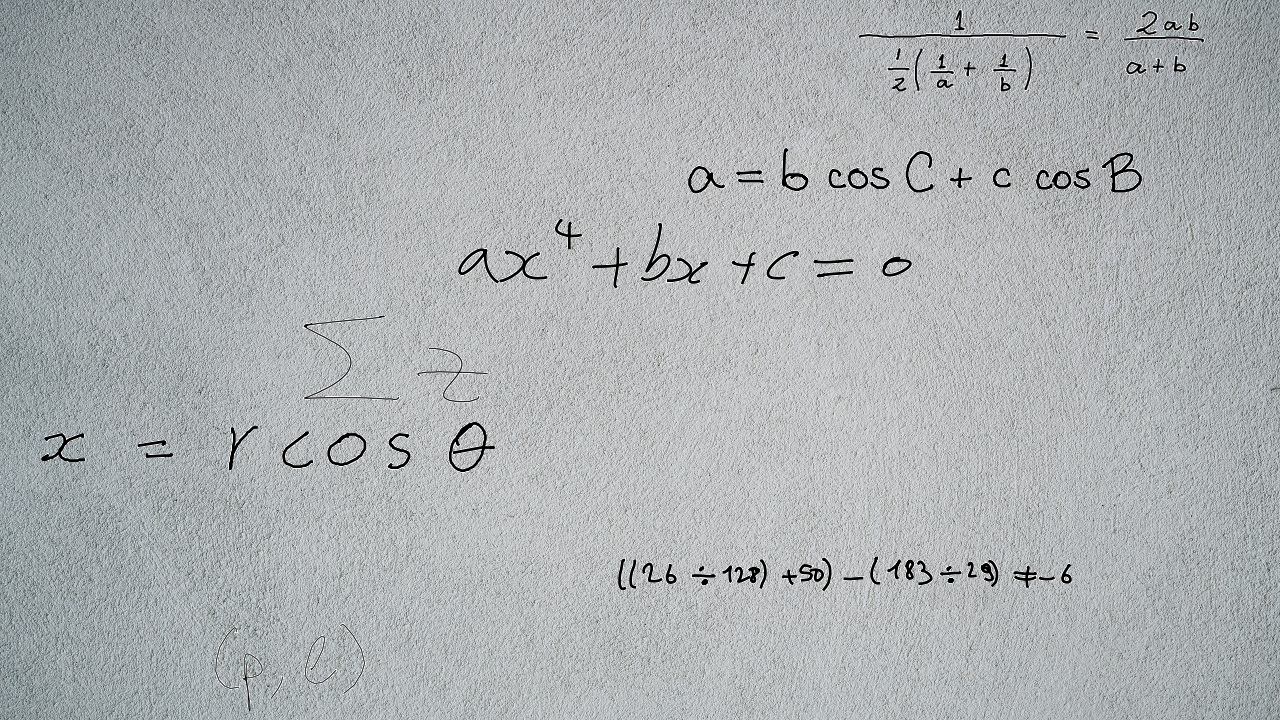 \frac{1}{\frac{1}{2}(\frac{1}{a}+\frac{1}{b})} = \frac{2ab}{a+b}
a = b cos C + c cos B
ax^4 + bx + c = 0
∑ z
x = r cos θ
((26 ÷ 128) + 50) − (183 ÷ 29) ≠ −6
(p, l)